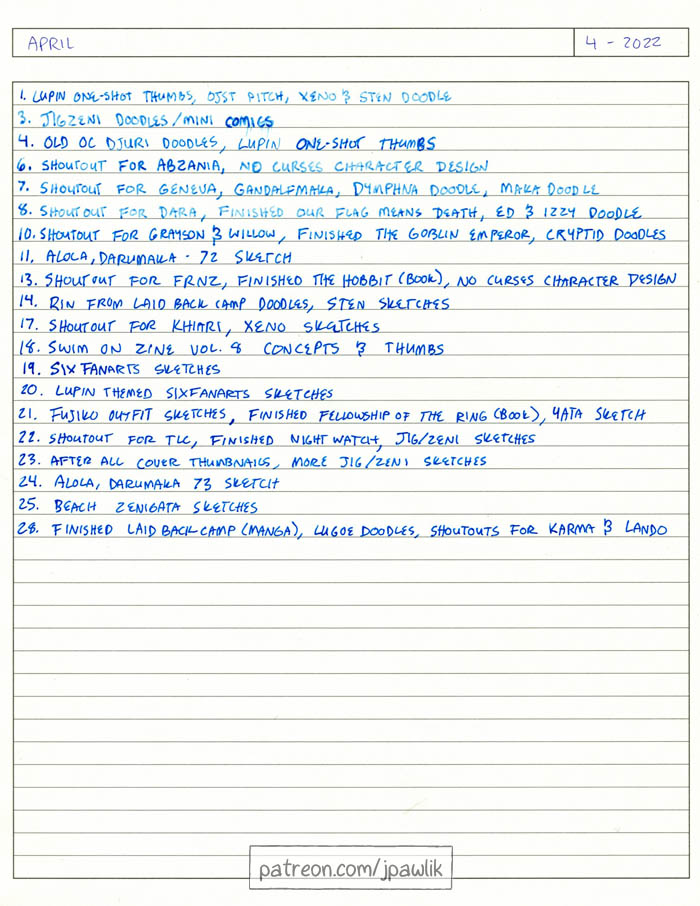 APRIL
4 - 2022
1. LUPIN ONE-SHOT THUMBS, OJST PITCH, XENO & STEN DOODLE
3. JIGZENI DOODLES/MINI COMICS
4. OLD OC DJURI DOODLES, LUPIN ONE-SHOT THUMBS
6. SHOUTOUT FOR ABZANIA, NO CURSES CHARACTER DESIGN
7. SHOUTOUT FOR GENEVA, GANDALFMAKA, DYMPHNA DOODLE, MAKA DOODLE
8. SHOUTOUT FOR DARA, FINISHED OUR FLAG MEANS DEATH, ED & IZZY DOODLE
10. SHOUTOUT FOR GRAYSON & WILLOW, FINISHED THE GOBLIN EMPEROR, CRYPTID DOODLES
11. ALOLA, DARUMAKA - 72 SKETCH
13. SHOUTOUT FOR FRNZ, FINISHED THE HOBBIT (BOOK), NO CURSES CHARACTER DESIGN
14. RIN FROM LAID BACK CAMP DOODLES, STEN SKETCHES
17. SHOUTOUT FOR KHIARI, XENO SKETCHES
18. SWIM ON ZINE VOL. 8 CONCEPTS & THUMBS
19. SIX FANARTS SKETCHES
20. LUPIN THEMED SIXFANARTS SKETCHES
21. FUJIKO OUTFIT SKETCHES, FINISHED FELLOWSHIP OF THE RING (BOOK), YATA SKETCH
22. SHOUTOUT FOR TLC, FINISHED NIGHT WATCH, JIG/ZENI SKETCHES
23. AFTER ALL COVER THUMBNAILS, MORE JIG/ZENI SKETCHES
24. ALOLA, DARUMAKA 73 SKETCH
25. BEACH ZENIGATA SKETCHES
28. FINISHED LAID BACK CAMP (MANGA), LUGOE DOODLES, SHOUTOUTS FOR KARMA & LANDO
patreon.com/jpawlik